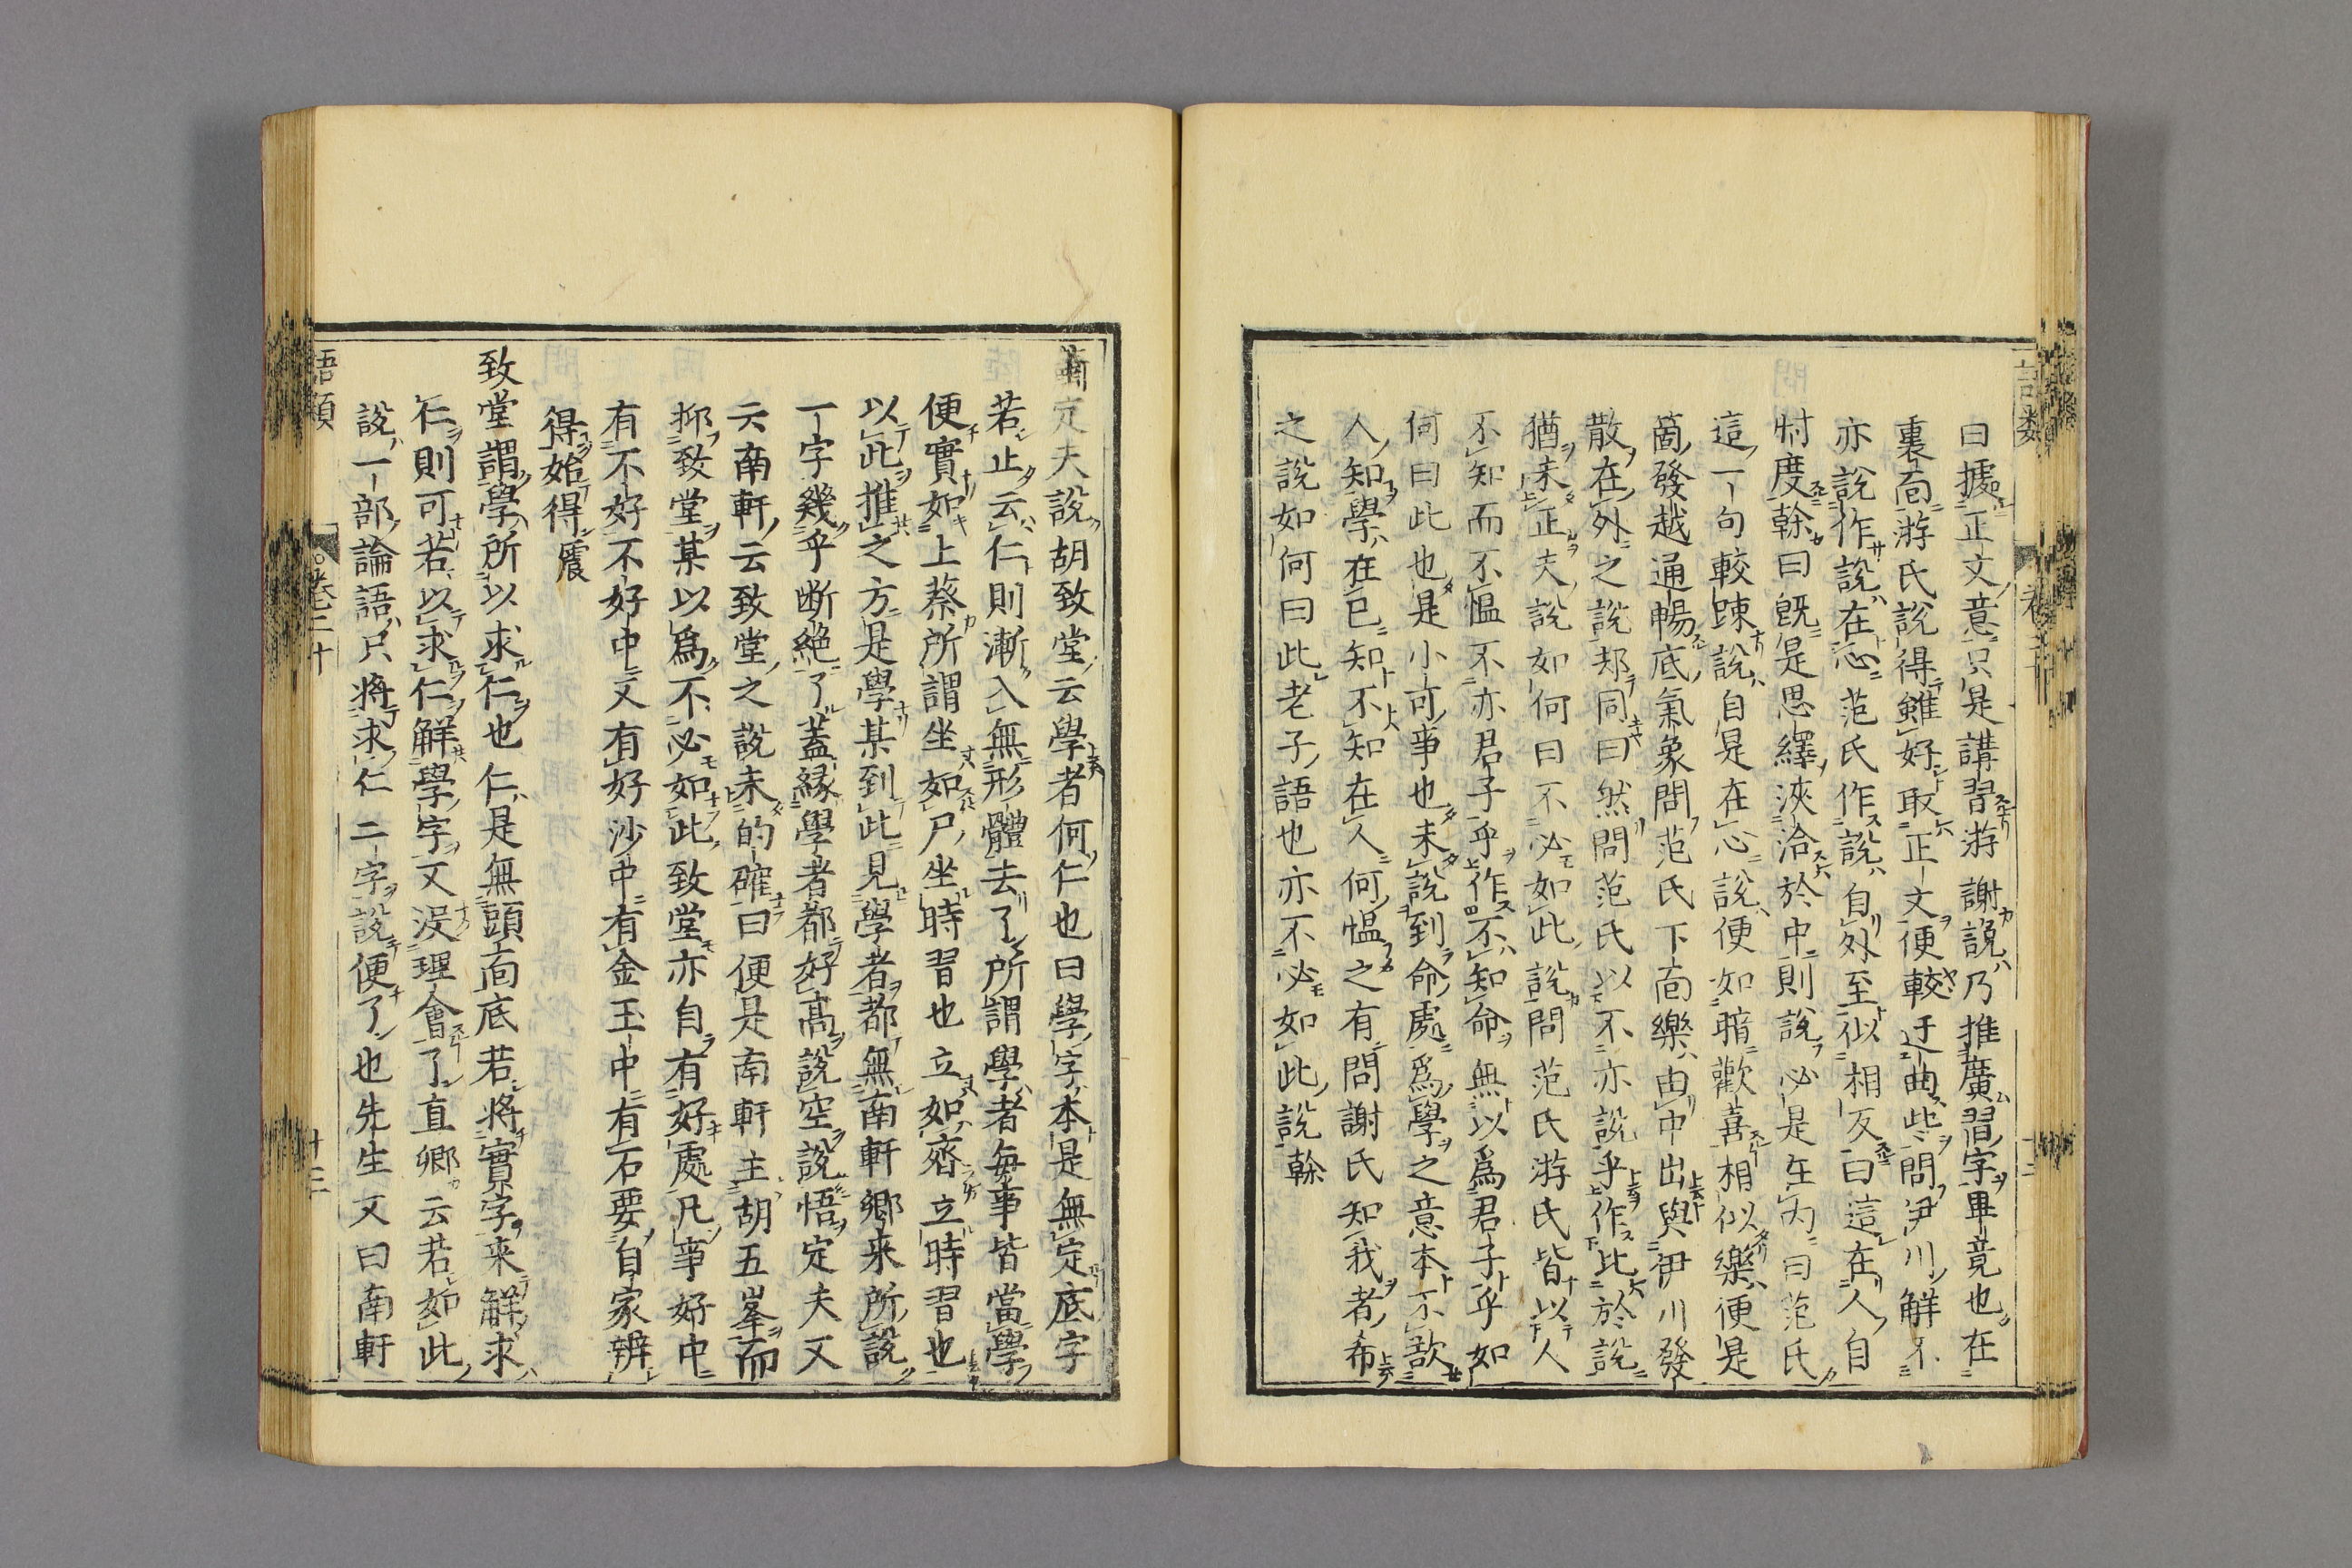 曰據正文意只是講習游謝說乃推廣習字畢竟也在
裏面游氏說得雖好取正文便較迂曲些問伊川解不
亦說作說在心范氏作說自外至似相反曰這在人自
忖度榦曰旣是思繹浹洽於中則說必是在內曰范氏
這一句較踈說自是在心說便如暗歡喜相似樂便是
箇發越通暢底氣象問范氏下面樂由中出與伊川發
散在外之說却同曰然問范氏以不亦說乎作比於說
猶未正夫說如何曰不必如此說問范氏游氏皆以人
不知而不慍不亦君子乎作不知命無以爲君子乎如
何曰此也是小可事也未說到命處爲學之意本不欲
人知學在己知不知在人何慍之有問謝氏知我者希
之說如何曰此老子語也亦不必如此說榦
蕭定夫說胡致堂云學者何仁也曰學字本是無定底字
若止云仁則漸入無形體去了所謂學者每事皆當學
便實如上蔡所謂坐如尸坐時習也立如齊立時習也
以此推之方是學某到此見學者都無南軒鄉來所說
一字幾乎斷絕了蓋緣學者都好高說空說悟定夫又
云南軒云致堂之說未的確曰便是南軒主胡五峯而
抑致堂某以爲不必如此致堂亦自有好處凡事好中
有不好不好中又有好沙中有金玉中有石要自家辨
得始得震
致堂謂學所以求仁也仁是無頭面底若將實字來解求
仁則可若以求仁解學字又沒理會了直卿云若如此
說一部論語只將求仁二字說便了也先生又曰南軒
語類
卷二十
十三